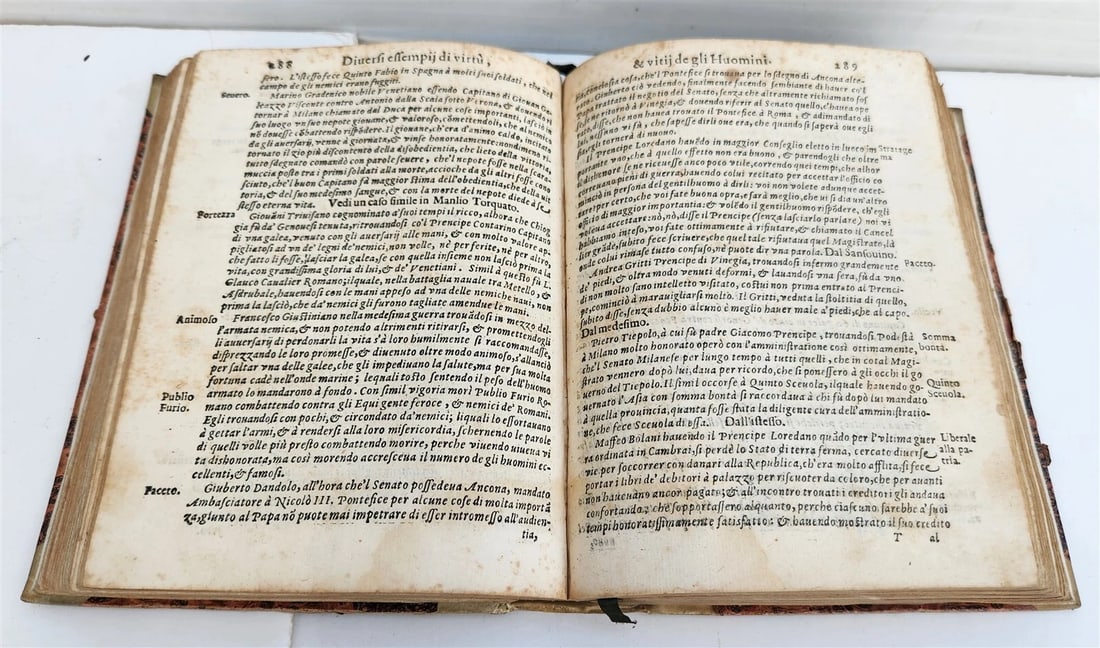 288 Diuersi essempij di virtù,
fero. L'istesso fece Quinto Fabio in Spagna à molti suoi soldati, che nel
campo de gli nemici erano fuggiti.
Seuero. Marino Gradenico nobile Venetiano essendo Capitano di Giouan Ga-
leazzo Visconte contro Antonio dalla Scala sotto Verona, & douendo
tornar à Milano chiamato dal Duca per alcune cose importanti, lasciò in
suo luogo vn suo nepote giouane, & valoroso, cõmettendoli, che al nemico
nõ douesse cõbattendo rispõdere. Il giouane, ch'era d'animo caldo, incitato
da gli auersarij, venne à giornata, & vinse honoratamente: nondimeno ri-
tornato il zio più discontento della disobedientia, che lieto della vittoria,
tutto sdegnato comandò con parole seuere, che'l nepote fosse nella scara-
muccia posto tra i primi soldati alla morte, accioche da gli altri fosse cono
sciuto, che'l buon Capitano fà maggior stima dell'obedientia, che della vit
toria, & del suo medesimo sangue, & con la morte del nepote diede à se
stesso eterna vita. Vedi un caso simile in Manlio Torquato.
Fortezza Giouãni Triuisano cognominato a' suoi tempi il ricco, alhora che Chiog
gia fù da' Genouesi tenuta, ritrouandosi co'l Prencipe Contarino Capitano
di vna galea, venuto con gli auersarij alle mani, & con molto valore ap-
pigliatosi ad vn de' legni de' nemici, non volle, nè per ferite, nè per altro,
che fatto li fosse, lasciar la galea, se con quella insieme non lasciò prima la
vita, con grandissima gloria di lui, & de' Venetiani. Simil à questo fù L.
Glauco Caualier Romano; ilquale, nella battaglia nauale tra Metello, &
Asdrubale, hauendosi con le mani appeso ad vna delle nemiche naui, non
prima la lasciò, che da' nemici gli furono tagliate amendue le mani.
Animoso Francesco Giustiniano nella medesima guerra trouãdosi in mezzo del-
l'armata nemica, & non potendo altrimenti ritirarsi, & promettendogli
li auuersarij di perdonarli la vita s'à loro humilmente si raccomandasse,
disprezzando le loro promesse, & diuenuto oltre modo animoso, s'allanciò
per saltar vna delle galee, che gli impediuano la salute, ma per sua molta
fortuna cadè nell'onde marine; lequali tosto sentendo il peso dell'huomo
armato lo mandarono à fondo. Con simil vigoria morì Publio Furio Ro-
Publio Furio. mano combattendo contra gli Equi gente feroce, & nemici de' Romani.
Egli trouandosi con pochi, & circondato da' nemici; liquali lo essortauano
à gettar l'armi, & à rendersi alla loro misericordia, schernendo le parole
di quelli volle più presto combattendo morire, perche viuendo uiueua vi
ta dishonorata, ma così morendo accresceua il numero de gli huomini ec-
cellenti, & famosi.
Faceto. Giuberto Dandolo, all'hora che'l Senato possedeua Ancona, mandato
Ambasciatore à Nicolò III. Pontefice per alcune cose di molta importã
za, giunto al Papa nõ puote mai impetrare di esser intromesso all'audien-
tia,
& vitij de gli Huomini. 289
tia, conciosia cosa, che'l Pontefice si trouaua per lo sdegno di Ancona alte-
rato. Giuberto ciò vedendo, finalmente facendo sembiante di hauer co'l
Papa trattato il negotio del Senato, senza che altramente richiamato fos
se, se ne ritornò à Vinegia, & douendo riferir al Senato quello, c'haueua ope
rato, disse, che non hauea trouato il Pontefice à Roma, & adimandato di
lui, nessuno vi fù, che sapesse dirli oue era, che quando si saperà oue egli
sia, egli tornerà di nuouo.
Il Prencipe Loredano hauẽdo in maggior Conseglio eletto in luoco im Stratage
portante vno, che à quello effetto non era buono, & parendogli che oltre ma
al dishonore se ne riceuesse anco poco vtile, correndo quei tempi, che alhor
correuano pieni di guerra, hauendo colui recitato per accettar l'officio co
minciò in persona del gentilhuomo à dirli: voi non volete adunque accet-
tar, che voi? certo voi fate buona opra, e sarà meglio, che ui si dia un'altro
officio di maggior importantia; & volẽdo il gentilhuomo rispõdere, ch'egli
lo accetta: nò, nò, disse il Prencipe (senza lasciarlo parlare) noi vi
habbiamo inteso, voi fate ottimamente à rifiutare, & chiamato il Cancel
lier grãde, subito fece scriuere, che quel tale rifiutaua quel Magistrato, là
onde colui rimase tutto confuso, nè puote dir vna parola. Dal Sansouino.
Andrea Gritti Prencipe di Vinegia, trouandosi infermo grandemente Faceto.
de' piedi, & oltra modo venuti deformi, & lauandosi vna sera, fù da vno
di non molto sano intelletto visitato, costui non prima entrato al Prenci-
pe, cominciò à marauigliarsi molto. Il Gritti, veduta la stoltitia di quello,
subito disse, senza dubbio alcuno è meglio hauer male a' piedi, che al capo.
Dal medesimo.
Pietro Tiepolo, à cui fù padre Giacomo Prencipe, trouandosi Podestà Somma
à Milano molto honorato operò con l'amministratione così ottimamente, bontà.
che'l Senato Milanese per lungo tempo à tutti quelli, che in cotal Magi-
strato vennero dopò lui, daua per ricordo, che si ponessero à gli occhi il go
uerno del Tiepolo. Il simil occorse à Quinto Sceuola, ilquale hauendo go- Quinto
uernato l'Asia con somma bontà si raccordaua à chi fù dopò lui mandato Sceuola.
à quella prouincia, quanta fosse stata la diligente cura dell'amministratio-
ne, che fece Sceuola di essa. Dall'istesso.
Maffeo Bolani hauendo il Prencipe Loredano quãdo per l'vltima guer Liberale
ra ordinata in Cambrai, si perdè lo Stato di terra ferma, cercato diuerse alla pa-
vie per soccorrer con danari alla Republica, ch'era molto afflita, si fece tria.
portar i libri de' debitori à palazzo per riscuoter da coloro, che per auanti
non haueuano ancor pagato; & all'incontro trouati i creditori gli andaua
confortando, che sopportassero alquanto, perche ciascuno sarebbe a' suoi
tempi honoratissimamente satisfatto: & hauendo mostrato il suo credito
T al